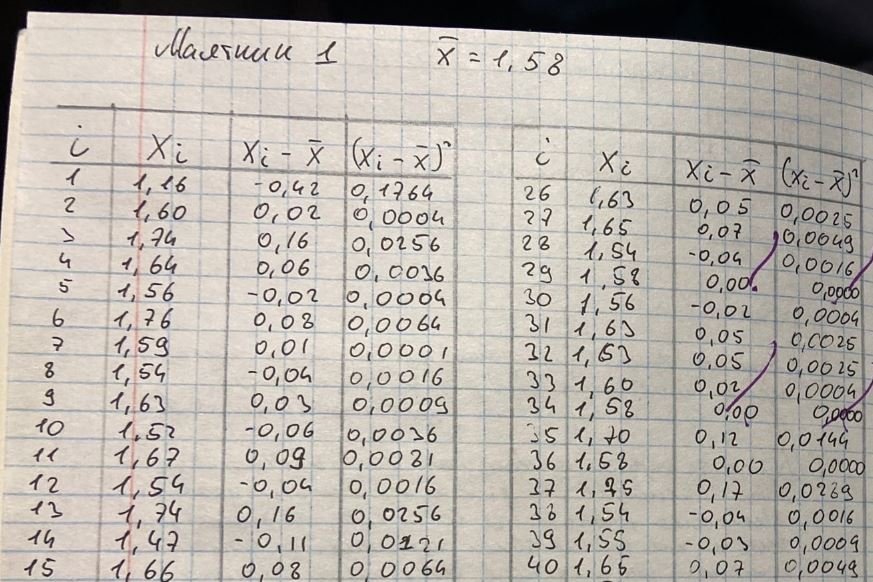 Маятник 1 x̄ = 1,58
i Xi Xi - x̄ (Xi - x̄)² i Xi Xi - x̄ (Xi - x̄)²
1 1,16 -0,42 0,1764 26 1,63 0,05 0,0025
2 1,60 0,02 0,0004 27 1,65 0,07 0,0049
3 1,74 0,16 0,0256 28 1,54 -0,04 0,0016
4 1,64 0,06 0,0036 29 1,58 0,00 0,0000
5 1,56 -0,02 0,0004 30 1,56 -0,02 0,0004
6 1,76 0,08 0,0064 31 1,63 0,05 0,0025
7 1,59 0,01 0,0001 32 1,63 0,05 0,0025
8 1,54 -0,04 0,0016 33 1,60 0,02 0,0004
9 1,63 0,03 0,0009 34 1,58 0,00 0,0000
10 1,52 -0,06 0,0036 35 1,70 0,12 0,0144
11 1,67 0,09 0,0081 36 1,58 0,00 0,0000
12 1,54 -0,04 0,0016 37 1,75 0,17 0,0289
13 1,74 0,16 0,0256 38 1,54 -0,04 0,0016
14 1,47 -0,11 0,0121 39 1,55 -0,03 0,0009
15 1,66 0,08 0,0064 40 1,65 0,07 0,0049